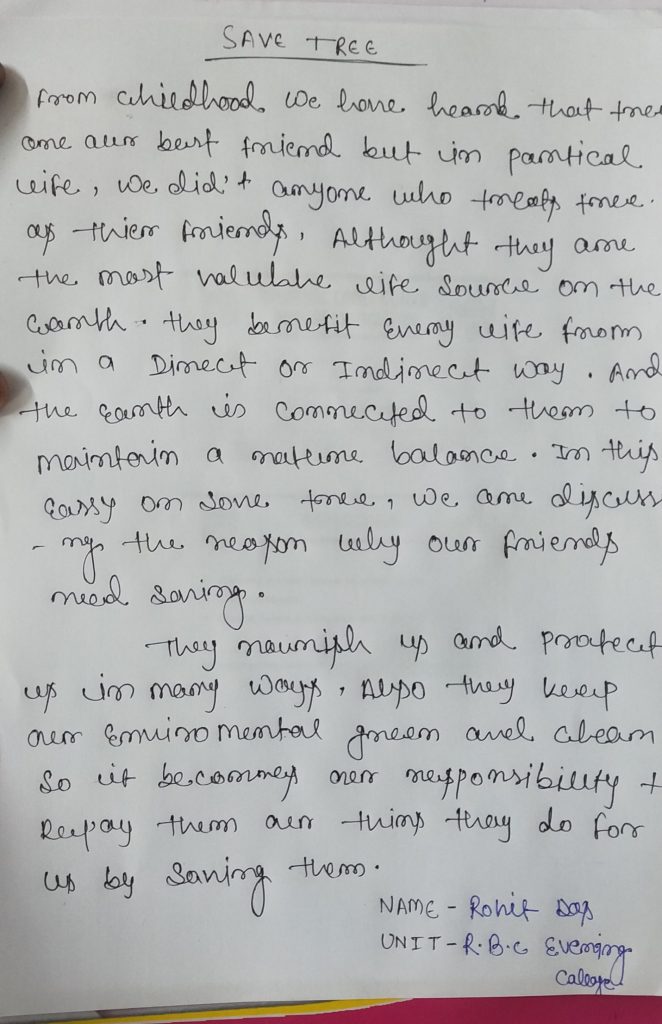 SAVE TREE
From chiedhood, we have heard that tree
are aur best friend but in partical
life, we did't anyone who treats tree.
as thier friends, Althought they are
the most valuable life source on the
Earth. they benefit Every life from
in a Direct or Indirect way. And
the earth is connected to them to
maintain a nature balance. In this
eassy on save tree, we are discuss
-ng the reason why our friends
need saving.
They nourish us and protect
us in many ways, Also they keep
our Enviromental green and clean
So it becomes our responsibility t
Repay them our thins they do for
us by saving them.
NAME - Rohit Das
UNIT - R.B.C Evening
Calage